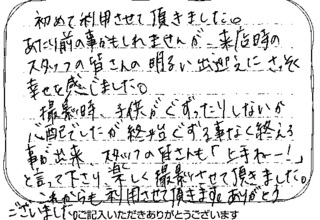 初めて利用させて頂きました。
あたり前の事かもしれませんが、来店時の
スタッフの皆さんの明るい出迎えに、さっそく
幸せを感じました。
撮影時、子供がぐずったりしないか
心配でしたが終始ぐずる事なく終える
事が出来、スタッフの皆さんも「上手ねー!」
と言って下さり楽しく撮影させて頂きました。
これからも利用させて頂きます。ありがとう
ございました。
ご記入いただきありがとうございます